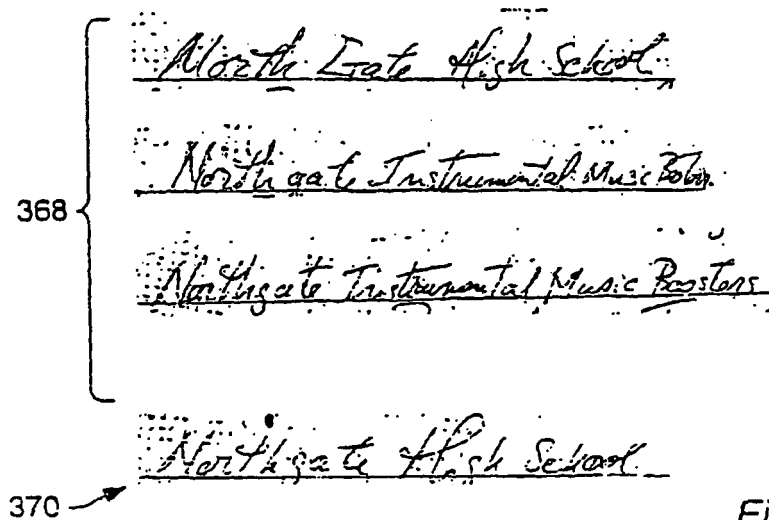 North Gate High School
Northgate Instrumental Music
368
Northgate Instrumental Music Boosters
Northgate High School
370
Fi